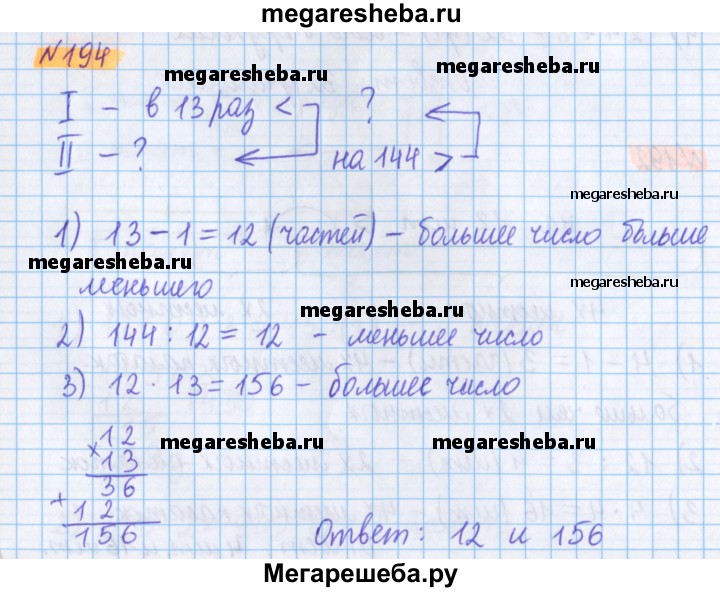 megaresheba.ru
№194
megaresheba.ru
megaresheba.ru
I - в 13 раз < ?
II - ? на 144 >
megaresheba.ru
1) 13-1=12 (частей) - большее число больше
megaresheba.ru
меньшего
megaresheba.ru
megaresheba.ru
2) 144:12=12 - меньшее число
3) 12·13=156 - большее число
×12
13
megaresheba.ru
megaresheba.ru
36
+
12
156
Ответ: 12 и 156
Мегарешеба.ру